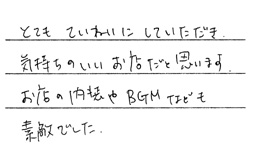 とても ていねいに していただき
気持ちのいい お店だと思います
お店の内装や BGM なども
素敵でした.